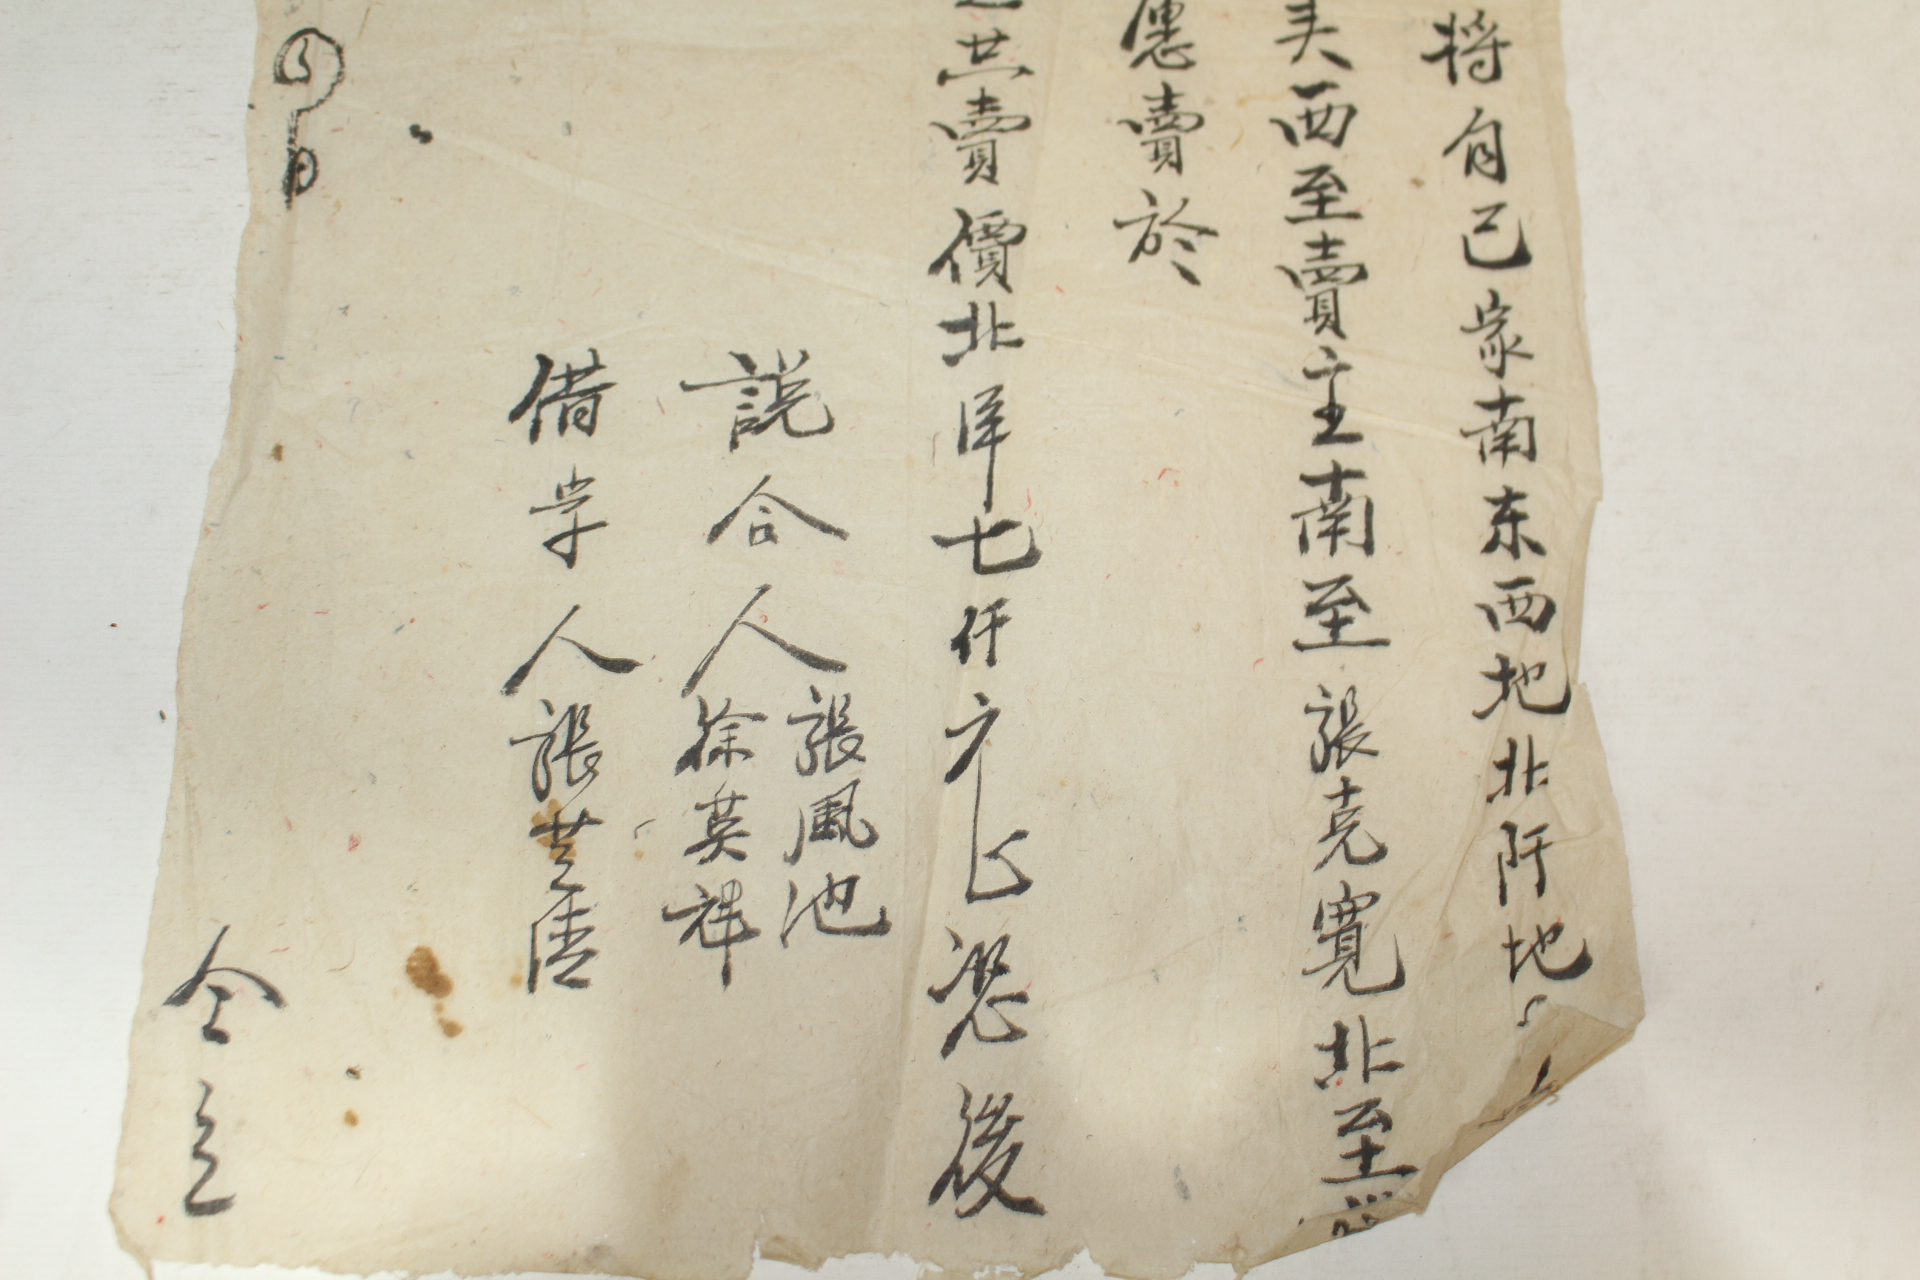 將自己家南东西地北阡地
西至賣主南至張克寬北至
愿賣於
共賣價北洋七仟元正恐後
說合人張風池
徐英祥
借字人張芝
仝立